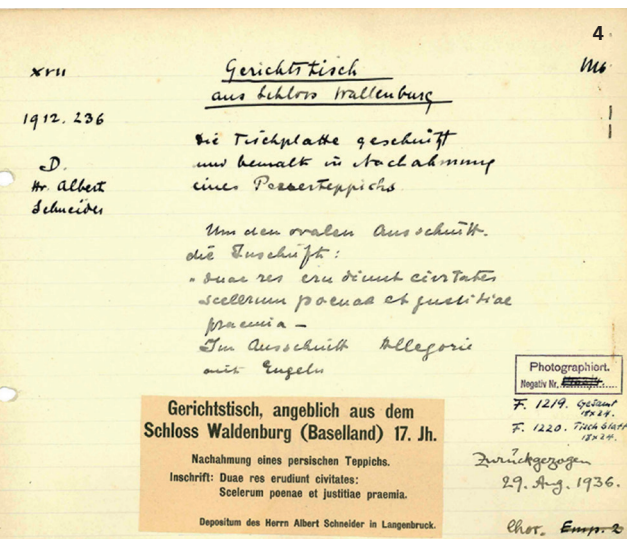 4
XVII
Gerichtstisch
M6
aus Schloss Wallenburg
1912. 236
Die Tischplatte geschnitzt
und bemalt in Nachahmung
eines Perserteppichs.
D.
Hr. Albert
Schneider
Um den ovalen Ausschnitt.
die Inschrift:
"Duae res erudiunt civitates
scelerum poenae et justitiae
praemia –
Im Ausschnitt Allegorie
mit Engeln
Photographiert.
Negativ Nr.
F. 1219. Gesamt
18x24.
F. 1220. Tischblatt
18x24.
Gerichtstisch, angeblich aus dem
Schloss Waldenburg (Baselland) 17. Jh.
Nachahmung eines persischen Teppichs.
Inschrift: Duae res erudiunt civitates:
Scelerum poenae et justitiae praemia.
Depositum des Herrn Albert Schneider in Langenbruck.
Zurückgezogen
29. Aug. 1936.
Chor. Emp. 2